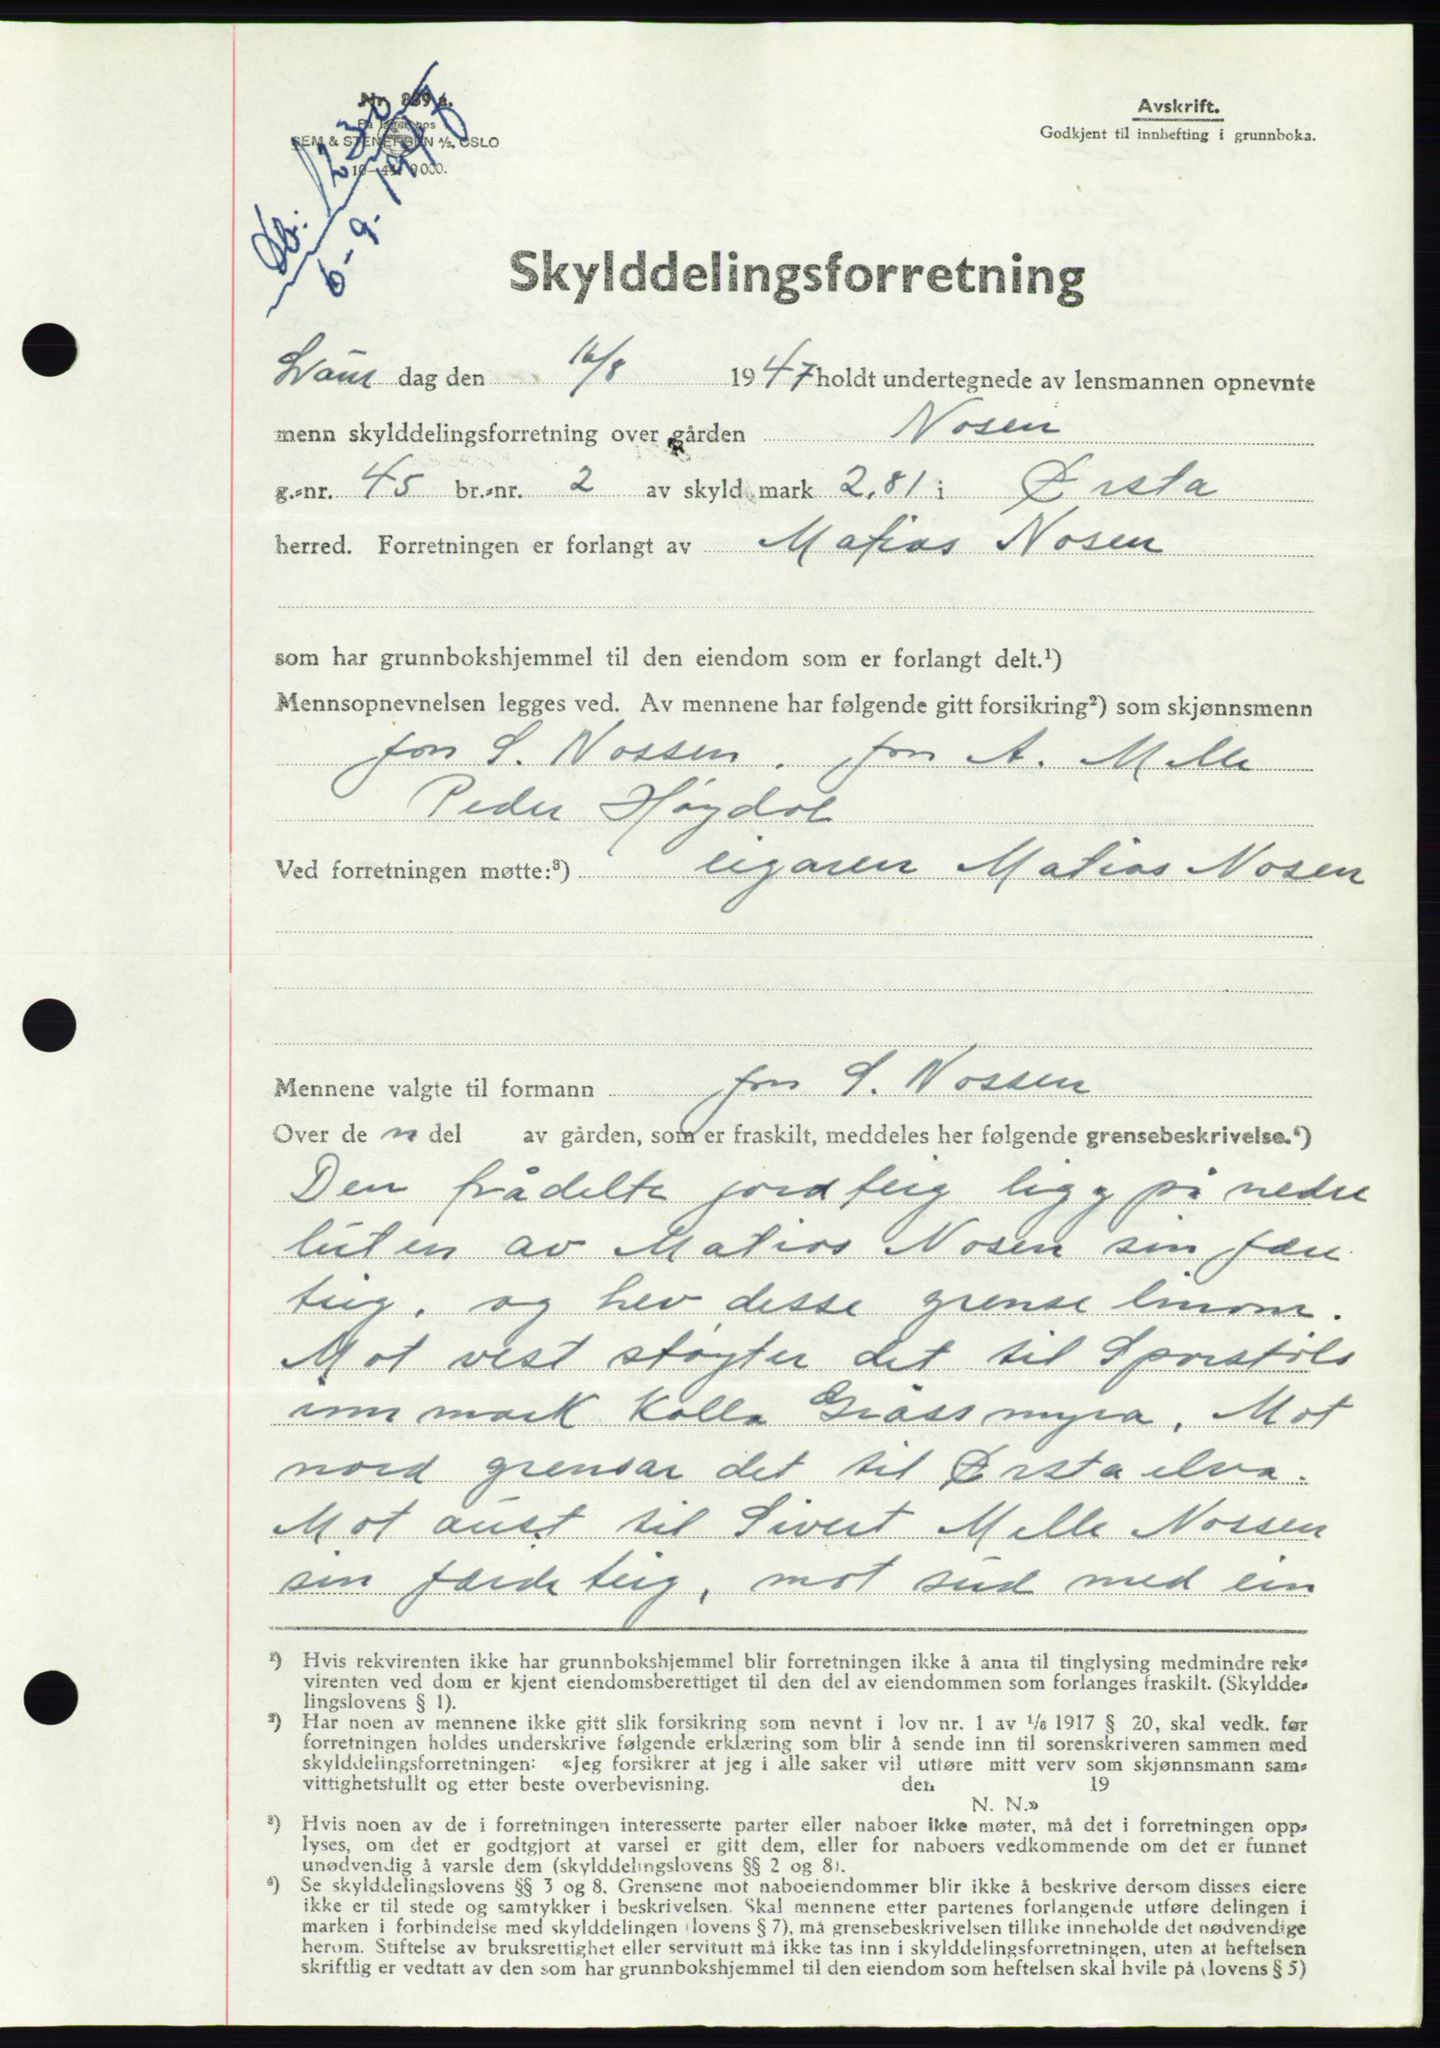 Nr. 839 a.
På lager hos
SEM & STENERSEN A/S, OSLO
10-41. 9000.
Db. 1230
6-9-1947
Avskrift.
Godkjent til innhefting i grunnboka.
Skylddelingsforretning
Laur dag den 16/8 1947 holdt undertegnede av lensmannen opnevnte
menn skylddelingsforretning over gården Nosen
g.-nr. 45 br.-nr. 2 av skyld mark 2,81 i Ørsta
herred. Forretningen er forlangt av Matias Nosen
som har grunnbokshjemmel til den eiendom som er forlangt delt.¹)
Mennsopnevnelsen legges ved. Av mennene har følgende gitt forsikring²) som skjønnsmenn
Jon S. Nossen. Jon A. Melle
Peder Høgdol
Ved forretningen møtte:³) eigaren Matias Nosen
Mennene valgte til formann Jon S. Nossen
Over de n del av gården, som er fraskilt, meddeles her følgende grensebeskrivelse.⁴)
Den frådelte jordteig ligg på nedre
luten av Matias Nosen sin føre
teig, og hev desse grense linone.
Mot vest støyter det til Sporstøls
inn mark kalla Gråssmyra. Mot
nord grensar det til Ørsta elva.
Mot aust til Sivert Melle Nossen
sin førde teig, mot sud med ein
¹) Hvis rekvirenten ikke har grunnbokshjemmel blir forretningen ikke å anta til tinglysing medmindre rek-
virenten ved dom er kjent eiendomsberettiget til den del av eiendommen som forlanges fraskilt. (Skyldde-
lingslovens § 1).
²) Har noen av mennene ikke gitt slik forsikring som nevnt i lov nr. 1 av 1/6 1917 § 20, skal vedk. før
forretningen holdes underskrive følgende erklæring som blir å sende inn til sorenskriveren sammen med
skylddelingsforretningen: «Jeg forsikrer at jeg i alle saker vil utføre mitt verv som skjønnsmann sam-
vittighetsfullt og etter beste overbevisning. den 19
N. N.»
³) Hvis noen av de i forretningen interesserte parter eller naboer ikke møter, må det i forretningen opp-
lyses, om det er godtgjort at varsel er gitt dem, eller for naboers vedkommende om det er funnet
unødvendig å varsle dem (skylddelingslovens §§ 2 og 8).
⁴) Se skylddelingslovens §§ 3 og 8. Grensene mot naboeiendommer blir ikke å beskrive dersom disses eiere
ikke er til stede og samtykker i beskrivelsen. Skal mennene etter partenes forlangende utføre delingen i
marken i forbindelse med skylddelingen (lovens § 7), må grensebeskrivelsen tillike inneholde det nødvendige
herom. Stiftelse av bruksrettighet eller servitutt må ikke tas inn i skylddelingsforretningen, uten at heftelsen
skriftlig er vedtatt av den som har grunnbokshjemmel til den eiendom som heftelsen skal hvile på (lovens § 5)